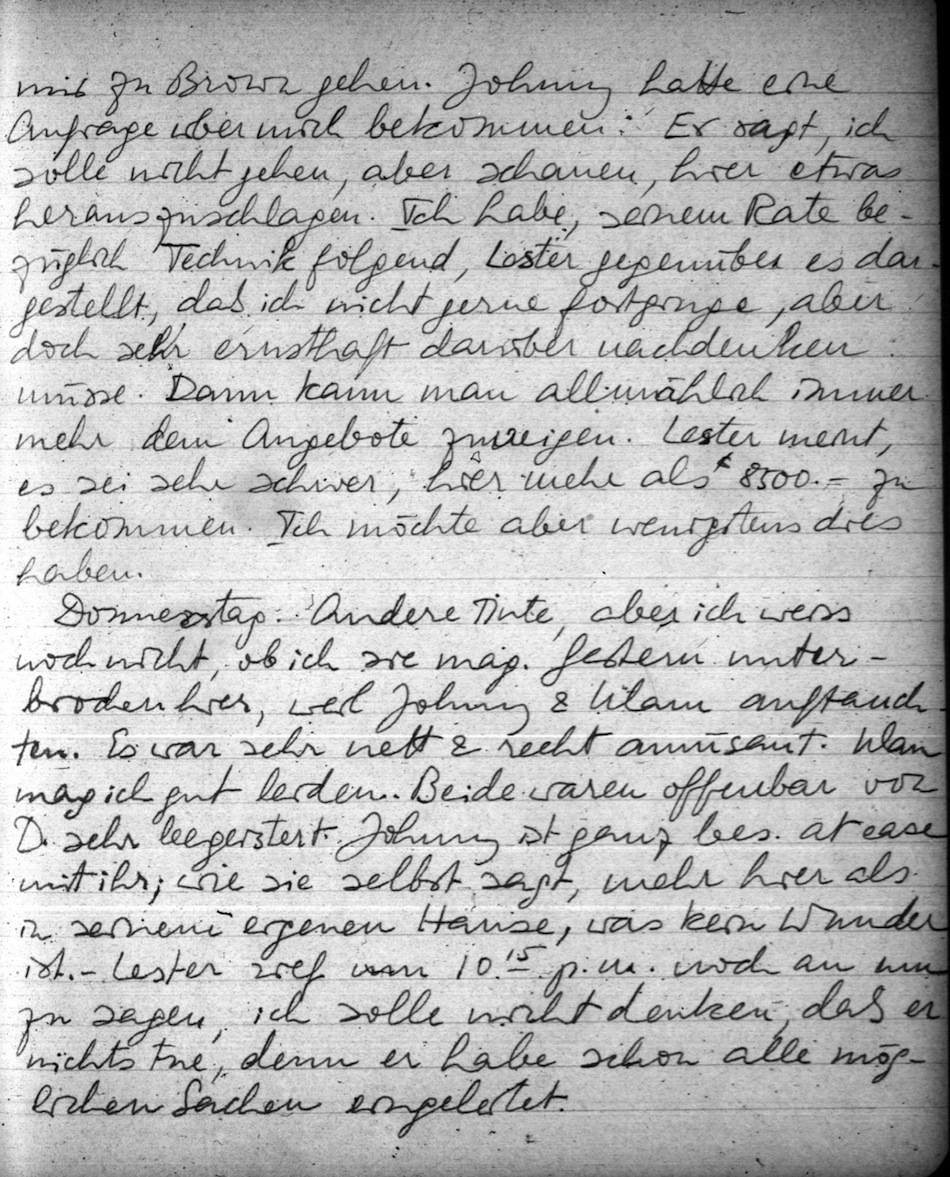 mir zu Brown gehen. Johnny hatte eine
Anfrage über mich bekommen. Er sagt, ich
solle nicht gehen, aber schauen, hier etwas
herauszuschlagen. Ich habe, seinem Rate be-
züglich Technik folgend, Lester gegenüber es dar-
gestellt, daß ich nicht gerne fortginge, aber
doch sehr ernsthaft darüber nachdenken
müsse. Dann kann man allmählich immer
mehr dem Angebote zuneigen. Lester meint,
es sei sehr schwer, hier mehr als $ 8500.– zu
bekommen. Ich möchte aber wenigstens dies
haben.
Donnerstag. Andere Tinte, aber ich weiss
noch nicht, ob ich sie mag. Gestern unter-
brochen hier, weil Johnny & Ulam auftauch-
ten. Es war sehr nett & recht amüsant. Ulam
mag ich gut leiden. Beide waren offenbar von
D. sehr begeistert. Johnny ist ganz bes. at ease
mit ihr; wie sie selbst sagt, mehr hier als
in seinem eigenen Hause, was kein Wunder
ist. – Lester rief um 10.15 p.m. noch an um
zu sagen, ich solle nicht denken, daß er
nichts tue, denn er habe schon alle mög-
lichen Sachen eingeleitet.